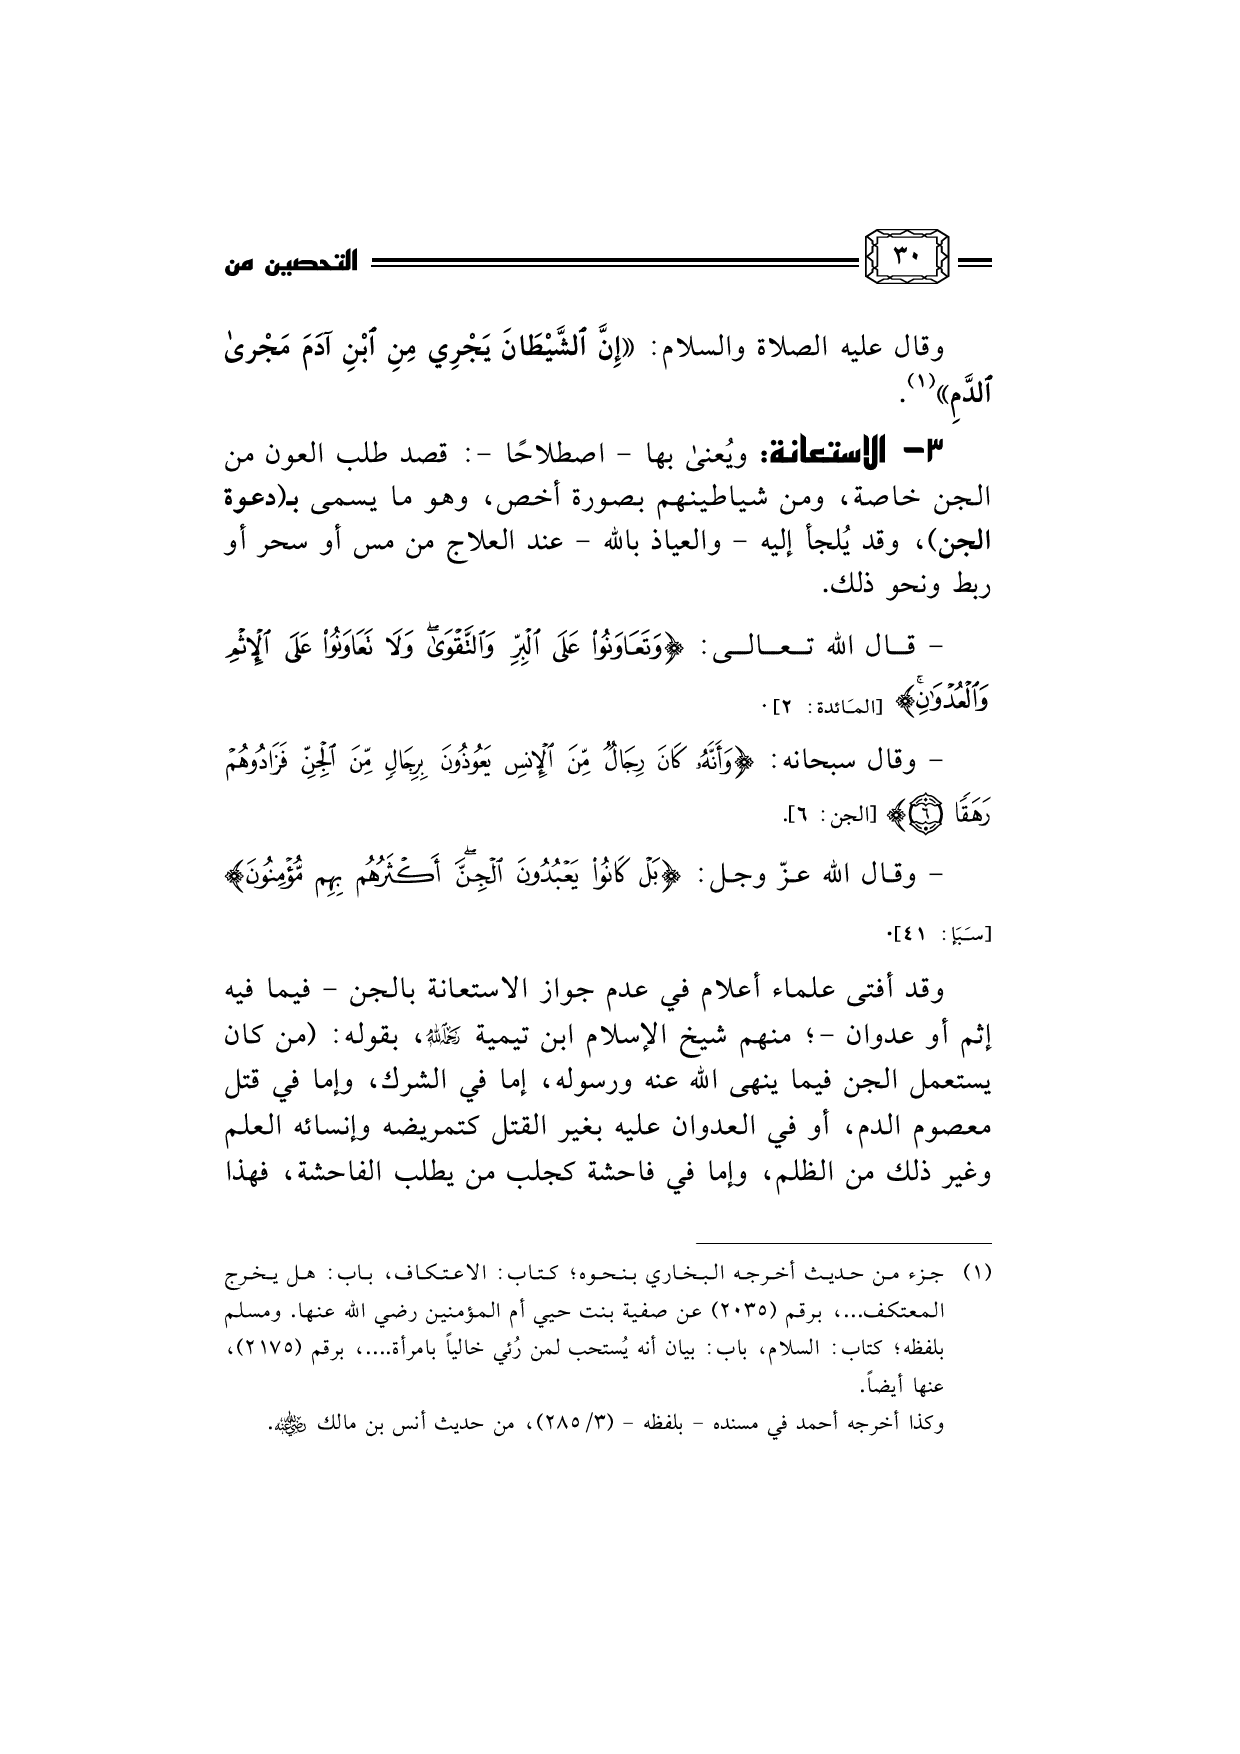 ٣٠
التحصين من
وقال عليه الصلاة والسلام: «إِنَّ ٱلشَّيْطَانَ يَجْرِي مِنِ ٱبْنِ آدَمَ مَجْرىٰ
ٱلدَّمِ»(١).
٣- الاستعانة: ويُعنىٰ بها - اصطلاحًا -: قصد طلب العون من
الجن خاصة، ومن شياطينهم بصورة أخص، وهو ما يسمى بـ(دعوة
الجن)، وقد يُلجأ إليه - والعياذ بالله - عند العلاج من مس أو سحر أو
ربط ونحو ذلك.
- قال الله تعالى: ﴿وَتَعَاوَنُوا۟ عَلَى ٱلْبِرِّ وَٱلتَّقْوَىٰۖ وَلَا تَعَاوَنُوا۟ عَلَى ٱلْإِثْمِ
وَٱلْعُدْوَٰنِۚ﴾ [المَائدة: ٢].
- وقال سبحانه: ﴿وَأَنَّهُۥ كَانَ رِجَالٌ مِّنَ ٱلْإِنسِ يَعُوذُونَ بِرِجَالٍ مِّنَ ٱلْجِنِّ فَزَادُوهُمْ
رَهَقًا ٦﴾ [الجن: ٦].
- وقال الله عزّ وجل: ﴿بَلْ كَانُوا۟ يَعْبُدُونَ ٱلْجِنَّۖ أَكْثَرُهُم بِهِم مُّؤْمِنُونَ﴾
[سَبَإ: ٤١].
وقد أفتى علماء أعلام في عدم جواز الاستعانة بالجن - فيما فيه
إثم أو عدوان -؛ منهم شيخ الإسلام ابن تيمية رحمه الله، بقوله: (من كان
يستعمل الجن فيما ينهى الله عنه ورسوله، إما في الشرك، وإما في قتل
معصوم الدم، أو في العدوان عليه بغير القتل كتمريضه وإنسائه العلم
وغير ذلك من الظلم، وإما في فاحشة كجلب من يطلب الفاحشة، فهذا
(١) جزء من حديث أخرجه البخاري بنحوه؛ كتاب: الاعتكاف، باب: هل يخرج
المعتكف...، برقم (٢٠٣٥) عن صفية بنت حيي أم المؤمنين رضي الله عنها. ومسلم
بلفظه؛ كتاب: السلام، باب: بيان أنه يُستحب لمن رُئي خالياً بامرأة....، برقم (٢١٧٥)،
عنها أيضاً.
وكذا أخرجه أحمد في مسنده - بلفظه - (٢٨٥/٣)، من حديث أنس بن مالك رضي الله عنه.